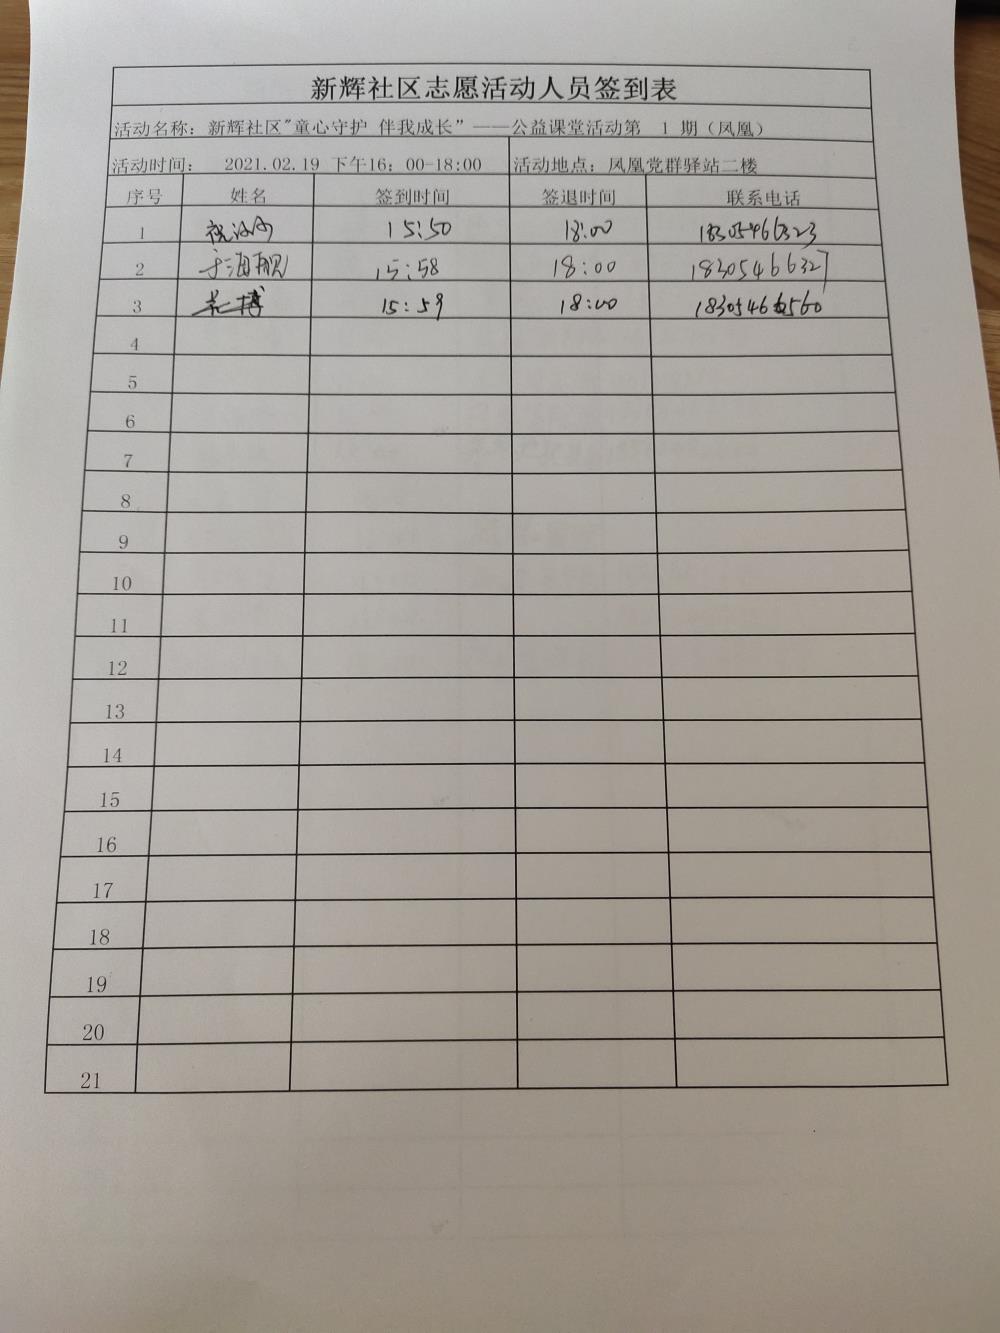 新辉社区志愿活动人员签到表
活动名称：新辉社区"童心守护 伴我成长"——公益课堂活动第 1 期（凤凰）
活动时间： 2021.02.19 下午16：00-18:00 活动地点：凤凰党群驿站二楼
序号 姓名 签到时间 签退时间 联系电话
1 15:50 18:00 18305466323
2 于海舰 15:58 18:00 18305466327
3 15:59 18:00 18305466560
4
5
6
7
8
9
10
11
12
13
14
15
16
17
18
19
20
21